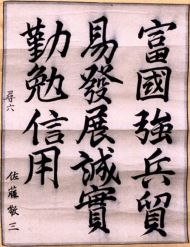 富國強兵貿
易發展誠實
勤勉信用
尋六
佐藤敬三